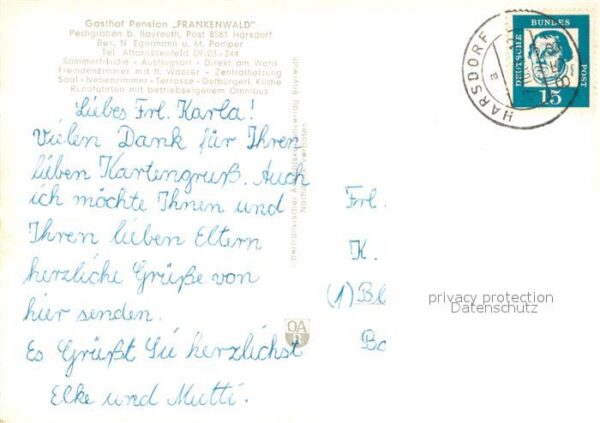 Gasthof Pension „FRANKENWALD"
Pechgraben b. Bayreuth, Post 8581 Harsdorf
Bes. N. Egermann u. M. Pamper
Tel. Altdrossenfeld 09-03/244
Sommerfrische - Ausflugsort - Direkt am Wald
Fremdenzimmer mit fl. Wasser - Zentralheizung
Saal - Nebenzimmer - Terrasse - Gutbürgerl. Küche
Rundfahrten mit betriebseigenem Omnibus
Liebes Frl. Karla!
Vielen Dank für Ihren
lieben Kartengruß. Auch
ich möchte Ihnen und
Ihren lieben Eltern
herzliche Grüße von
hier senden.
Es Grüßt Sie herzlichst
Elke und Mutti.
Nachdruck verboten
OA
HARSDORF
a
DEUTSCHE BUNDES POST
15
Frl.
K.
(1) Bl
Ba
privacy protection
Datenschutz